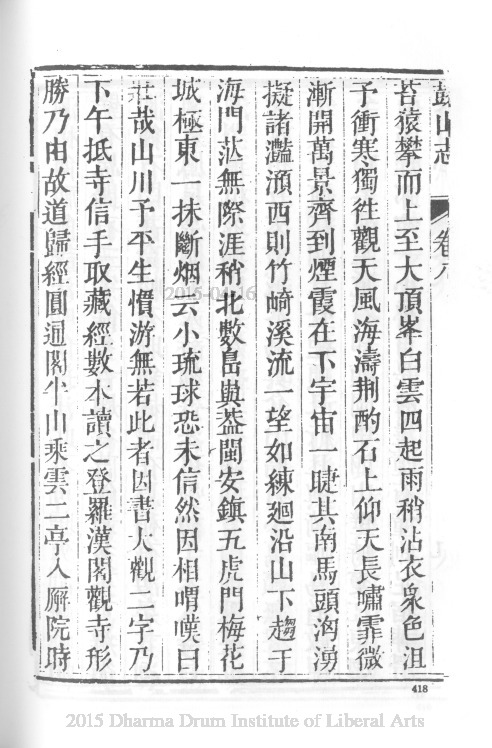 鼓山志 卷八
苔猿攀而上至大頂峯白雲四起雨稍沾衣衆色沮
予衝寒獨徃觀天風海濤荆酌石上仰天長嘯霏微
漸開萬景齊到煙霞在下宇宙一睫其南馬頭洶湧
擬諸灩澦西則竹崎溪流一望如練廻沿山下趨于
海門茫無際涯稍北數島與葢閩安鎮五虎門梅花
城極東一抹斷烟云小琉球恐未信然因相喟嘆曰
壯哉山川予平生慣游無若此者因書大觀二字乃
下午抵寺信手取藏經數本讀之登羅漢閣觀寺形
勝乃由故道歸經圓通閣半山乘雲二亭入廨院時
2015-04-16
418
2015 Dharma Drum Institute of Liberal Arts